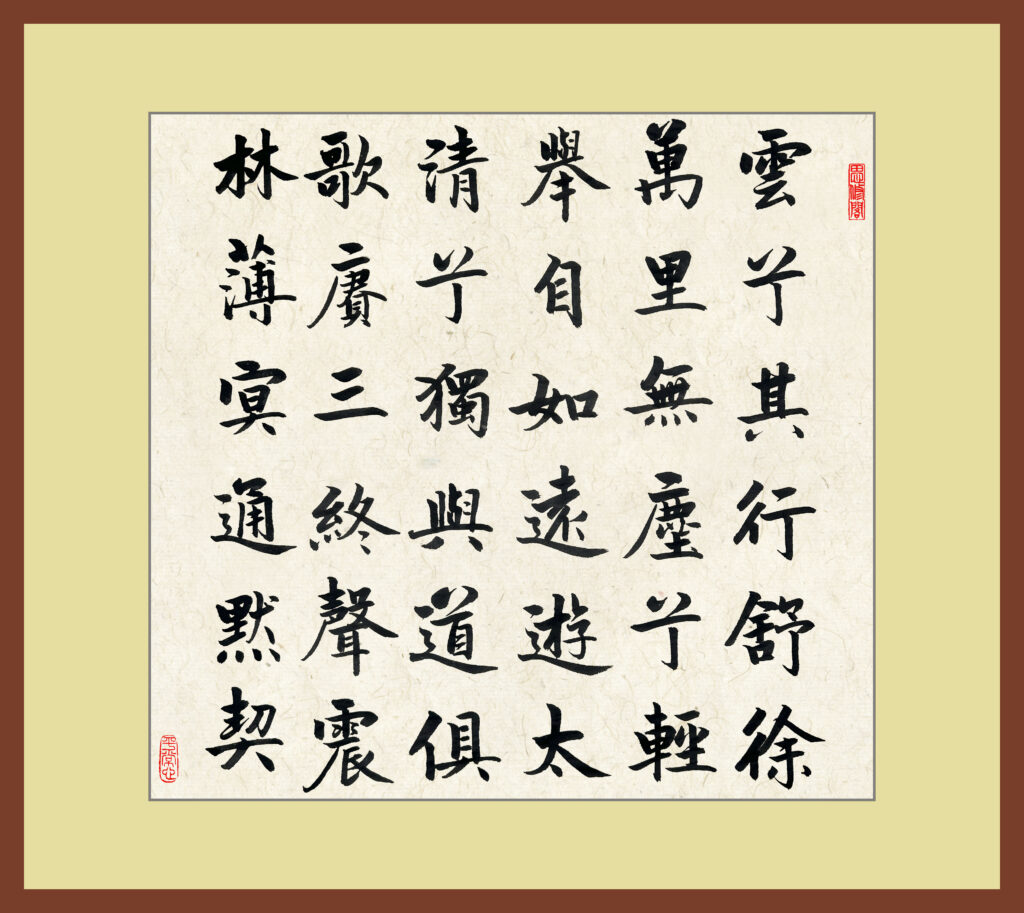 思修閣
雲兮其行舒徐
萬里無塵兮輕
舉自如遠遊太
清兮獨與道俱
歌賡三終聲震
林薄冥通黙契
平常心